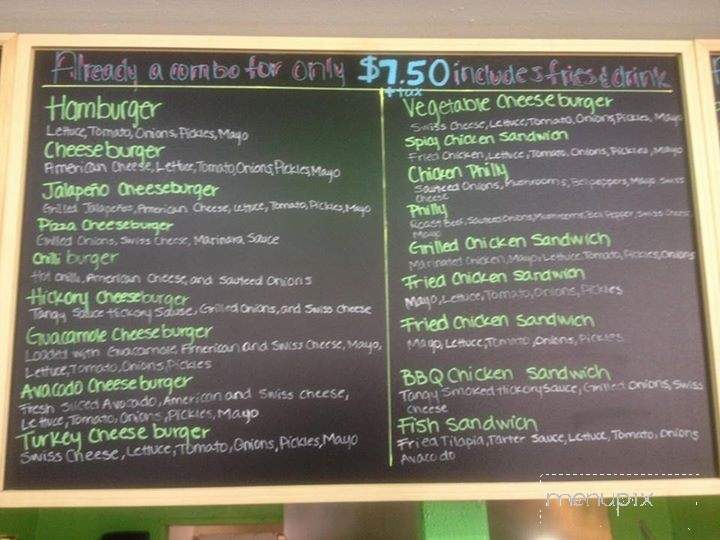 Already a combo for only $7.50 includes fries & drink
+ tax
Hamburger
Lettuce, Tomato, Onions, Pickles, Mayo
Cheeseburger
American Cheese, Lettuce, Tomato, Onions, Pickles, Mayo
Jalapeño Cheeseburger
Grilled Jalapeños, American Cheese, Lettuce, Tomato, Pickles, Mayo
Pizza Cheeseburger
Grilled Onions, Swiss Cheese, Marinara Sauce
Chilli burger
Hot chilli, American Cheese, and Sauteed Onions
Hickory Cheeseburger
Tangy Sauce Hickory Sauce, Grilled Onions, and Swiss Cheese
Guacamole Cheeseburger
Loaded with Guacamole, American and Swiss Cheese, Mayo,
Lettuce, Tomato, Onions, Pickles
Avacado Cheeseburger
Fresh Sliced Avocado, American and Swiss Cheese,
Lettuce, Tomato, Onions, Pickles, Mayo
Turkey Cheeseburger
Swiss Cheese, Lettuce, Tomato, Onions, Pickles, Mayo
Vegetable Cheeseburger
Swiss Cheese, Lettuce, Tomato, Onions, Pickles, Mayo
Spicy Chicken Sandwich
Fried Chicken, Lettuce, Tomato, Onions, Pickles, Mayo
Chicken Philly
Sauteed Onions, Mushrooms, Bell peppers, Mayo, Swiss
Cheese
Philly
Roast Beef, Sauteed Onions, Mushrooms, Bell Pepper, Swiss Cheese,
Mayo
Grilled Chicken Sandwich
Marinated Chicken, Mayo, Lettuce, Tomato, Pickles, Onions
Fried Chicken Sandwich
Mayo, Lettuce, Tomato, Onions, Pickles
Fried Chicken Sandwich
Mayo, Lettuce, Tomato, Onions, Pickles
BBQ Chicken Sandwich
Tangy Smoked Hickory Sauce, Grilled Onions, Swiss
Cheese
Fish Sandwich
Fried Tilapia, Tarter Sauce, Lettuce, Tomato, Onions
Avacado
menupix